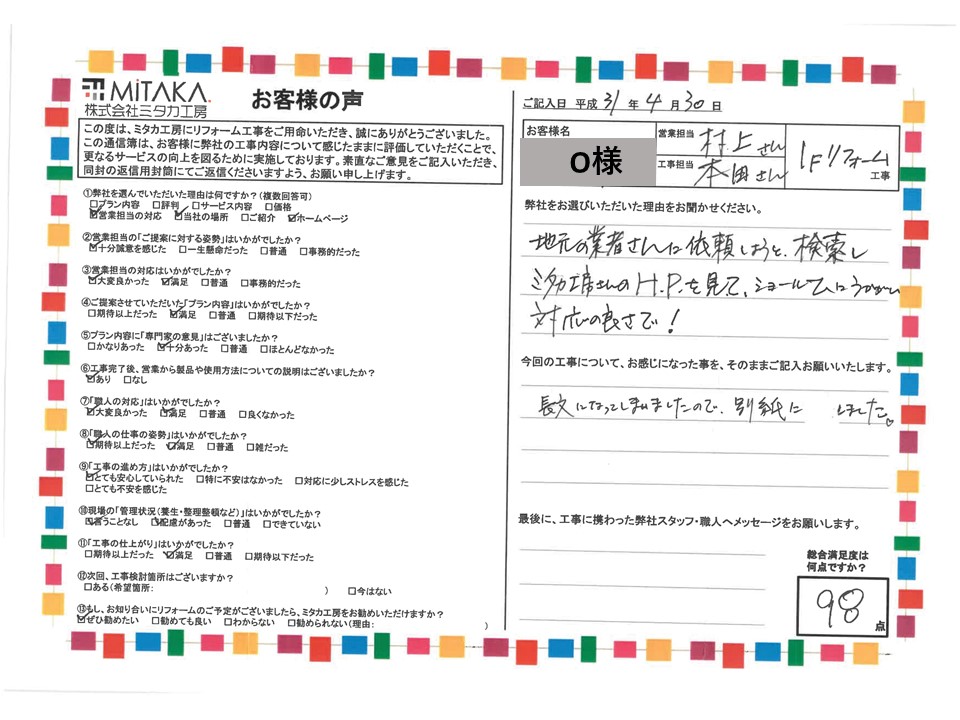 MiTAKA
株式会社ミタカ工房
お客様の声
この度は、ミタカ工房にリフォーム工事をご用命いただき、誠にありがとうございました。
この通信簿は、お客様に弊社の工事内容について感じたままに評価していただくことで、
更なるサービスの向上を図るために実施しております。素直なご意見をご記入いただき、
同封の返信用封筒にてご返信くださいますよう、お願い申し上げます。
①弊社を選んでいただいた理由は何ですか?(複数回答可)
□プラン内容 □評判 □サービス内容 □価格
☑営業担当の対応 ☑当社の場所 □ご紹介 ☑ホームページ
②営業担当の「ご提案に対する姿勢」はいかがでしたか?
☑十分誠意を感じた □一生懸命だった □普通 □事務的だった
③営業担当の対応はいかがでしたか?
☑大変良かった ☑満足 □普通 □事務的だった
④ご提案させていただいた「プラン内容」はいかがでしたか?
□期待以上だった ☑満足 □普通 □期待以下だった
⑤プラン内容に「専門家の意見」はございましたか?
□かなりあった ☑十分あった □普通 □ほとんどなかった
⑥工事完了後、営業から製品や使用方法についての説明はございましたか?
☑あり □なし
⑦「職人の対応」はいかがでしたか?
☑大変良かった ☑満足 □普通 □良くなかった
⑧「職人の仕事の姿勢」はいかがでしたか?
☑期待以上だった ☑満足 □普通 □雑だった
⑨「工事の進め方」はいかがでしたか?
☑とても安心していられた □特に不安はなかった □対応に少しストレスを感じた
□とても不安を感じた
⑩現場の「管理状況(養生・整理整頓など)」はいかがでしたか?
☑言うことなし ☑配慮があった □普通 □できていない
⑪「工事の仕上がり」はいかがでしたか?
□期待以上だった ☑満足 □普通 □期待以下だった
⑫次回、工事検討箇所はございますか?
□ある(希望箇所: ) □今はない
⑬もし、お知り合いにリフォームのご予定がございましたら、ミタカ工房をお勧めいただけますか?
☑ぜひ勧めたい □勧めても良い □わからない □勧められない(理由: )
ご記入日 平成 31 年 4 月 30 日
お客様名 O様
営業担当 村上さん
工事担当 本田さん
1Fリフォーム 工事
弊社をお選びいただいた理由をお聞かせください。
地元の業者さんに依頼しようと、検索し
ミタカ工房さんのH.P.を見て、ショールームにうかがい
対応の良さで!
今回の工事について、お感じになった事を、そのままご記入お願いいたします。
長文になってしまいましたので、別紙に しました。
最後に、工事に携わった弊社スタッフ・職人へメッセージをお願いします。
総合満足度は
何点ですか?
98 点